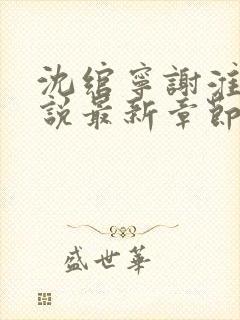 沈綰寧謝淮
說最新章節
盛世華